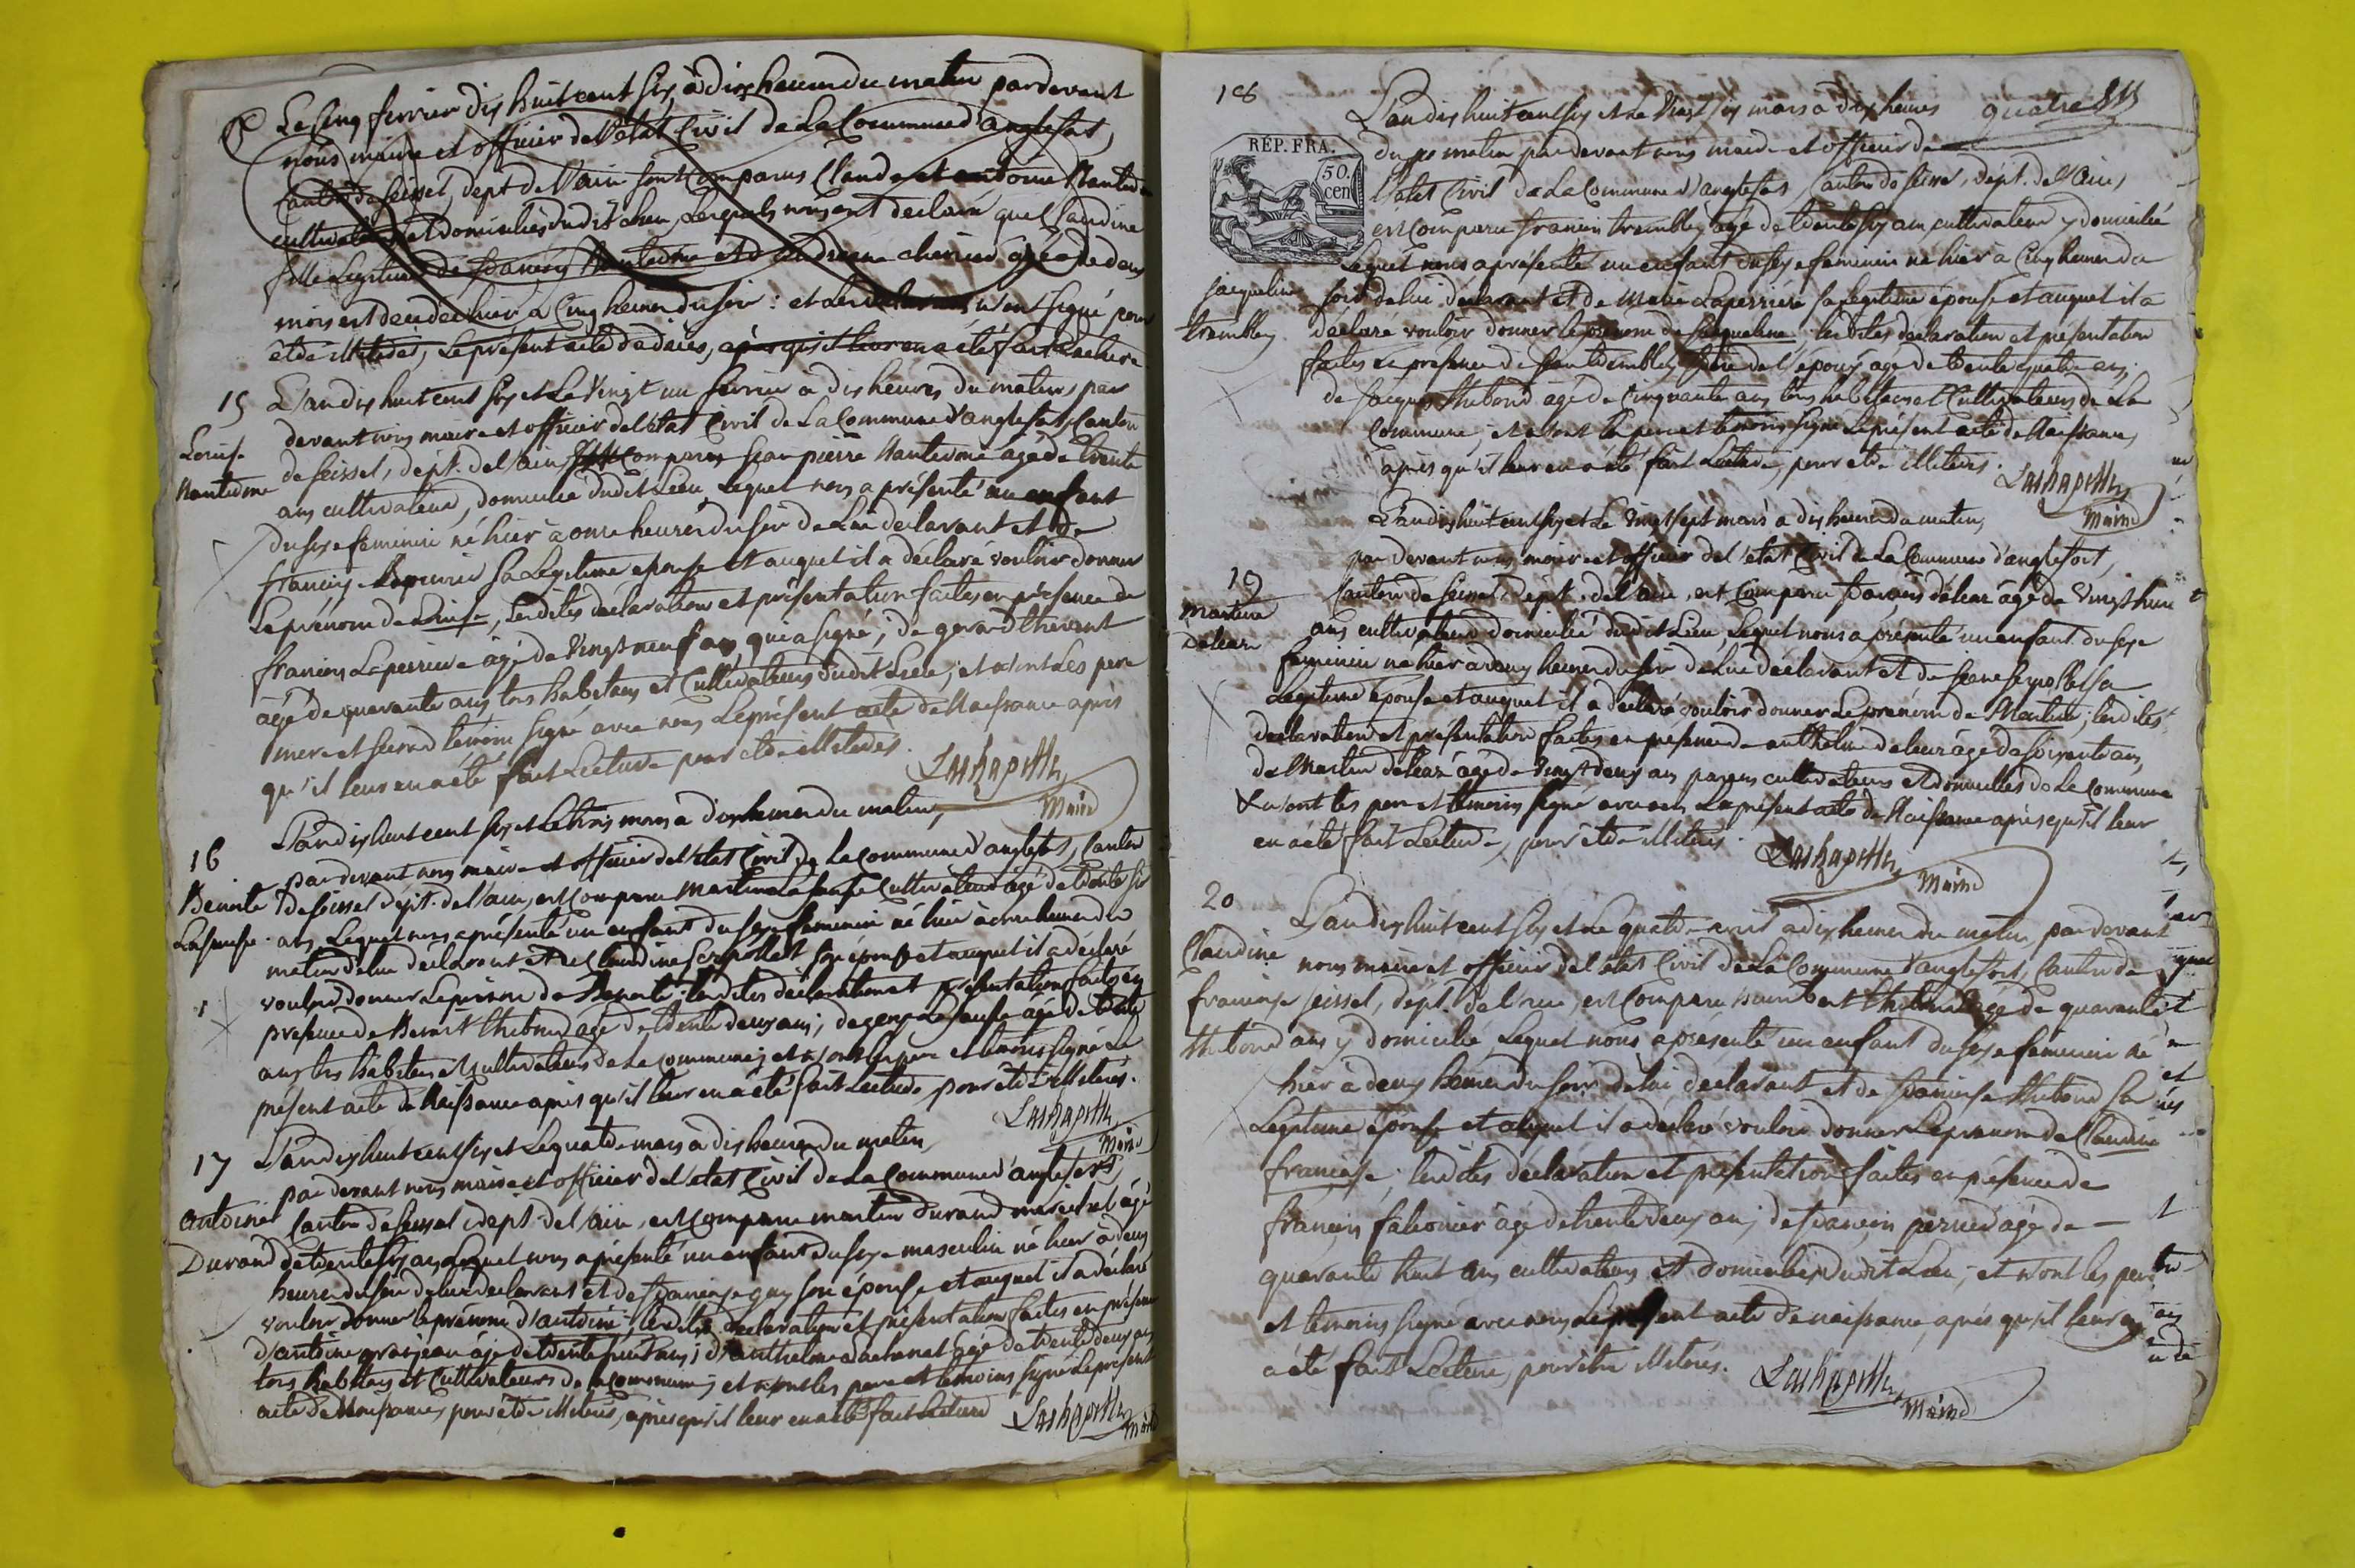 Le cinq fevrier dix huit cent six, à dix heures du matin par devant
nous maire et officier de l'état Civil de La Commune d'anglefort,
Canton de seissel, dept. de l'ain sont comparus Claude et antoine Nanterme
cultivateurs et domiciliés dudit Lieu, Lesquels nous ont declaré que Claudine
fille Legitime de francois Nanterme et d'andreanne cherine agée de deux
mois est decedée hier à Cinq heures du soir : et Les declarants n'ont signé pour
être illitérés, Le présent acte de décès, après qu'il leur en a été fait Lecture
15
Louise
Nanterme
L'an dix huit cent six et Le vingt un fevrier à dix heures du matin, par
devant nous maire et officier de l'état Civil de La Commune d'anglefort, Canton
de seissel, dépt. de l'ain est comparu Jean pierre Nanterme agé de trente
ans cultivateur, domicilié dudit Lieu Lequel nous a présenté un enfant
du sexe feminin né hier à onze heures du soir de Lui declarant et de
francoise Laperriere sa Legitime epouse et auquel il a déclaré vouloir donner
Le prénom de Louise, Lesdites déclaration et présentation faites en présence de
francois Laperriere âgé de vingt neuf ans, qui a signé ; de gerard thevent
âgé de quarante ans tous habitans et Cultivateurs dudit Lieu ; et n'ont Les pere
mere et second témoin signé avec nous Le présent acte de Naissance après
qu'il leur en a été fait Lecture pour être illitérés.
Lachapelle
Maire
16
Benoite
Lafausse
L'an dix huit cent six et Le trois mars à dix heures du matin,
par devant nous maire et officier de l'état Civil de La Commune d'anglefort, Canton
de seissel dépt. de l'ain, est comparu martin Lafausse Cultivateur agé de trente six
ans, Lequel nous a présenté un enfant du sexe feminin né hier à onze heures du
matin de lui déclarant et de Claudine serpollet son épouse et auquel il a déclaré
vouloir donner Le prénom de Benoite. Lesdites déclaration et présentation faites en
presence de Benoit thibond agé de trente deux ans, de Lafausse âgé de trente
ans tous habitans et Cultivateurs de La Commune ; et n'ont les pere et témoins signé Le
présent acte de Naissance après qu'il leur en a été fait Lecture pour être illitérés.
Lachapelle
Maire
17
antoine
Durand
L'an dix huit cent six et Le quatre mars à dix heures du matin,
par devant nous maire et officier de l'état Civil de La Commune d'anglefort,
Canton de seissel dept. de l'ain, est comparu martin durand marechal âgé
de trente six ans Lequel nous a présenté un enfant du sexe masculin né hier à deux
heures du soir de lui declarant et de francoise guy son épouse et auquel il a déclaré
vouloir donner Le prénom d'antoine ; Lesdites declaration et présentation faites en présence
d'antoine grosjean âgé de trente huit ans ; d'anthelme âgé de trente deux ans
tous habitans et Cultivateurs de La Commune ; et n'ont les pere et témoins signé Le présent
acte de Naissance, pour être illitérés, après qu'il leur en a été fait Lecture
Lachapelle
Maire
18
quatre
RÉP. FRA.
50.
cen
jacqueline
trembley
L'an dix huit cent six et Le vingt six mars à dix heures
du matin par devant nous maire et officier de
l'état Civil de La Commune d'anglefort, Canton de seissel, dépt. de l'ain,
est comparu francois trembley âgé de trente six ans, cultivateur y domicilié
Lequel nous a présenté un enfant du sexe feminin né hier à Cinq heures du
soir de lui déclarant et de Marie Laperriere sa Legitime épouse et auquel il a
déclaré vouloir donner le prénom de Jacqueline ; Lesdites declaration et présentation
faites en presence de trembley frere de l'époux âgé de trente quatre ans,
de Jacques thibond agé de Cinquante ans tous habitans et Cultivateurs de La
Commune ; et n'ont les pere et témoins signé Le présent acte de Naissance,
après qu'il leur en a été fait Lecture, pour être illitérés.
Lachapelle
Maire
19
Martine
Deleaz
L'an dix huit cent six et Le vingt sept mars à dix heures du matin,
par devant nous maire et officier de l'état Civil de La Commune d'anglefort,
Canton de seissel, dépt. de l'ain, est comparu francois deleaz âgé de vingt huit
ans cultivateur domicilié dudit Lieu, Lequel nous a présenté un enfant du sexe
feminin né hier à deux heures du soir de lui déclarant et de Jeane serpollet sa
Legitime épouse et auquel il a déclaré vouloir donner Le prénom de Martine, Lesdites
declaration et présentation faites en presence d'anthelme deleaz âgé de soixante ans,
de Martin deleaz âgé de vingt deux ans parens cultivateurs et domiciliés de La Commune
et n'ont les pere et témoins signé avec nous Le présent acte de Naissance après qu'il leur
en a été fait Lecture, pour être illitérés.
Lachapelle
Maire
20
Claudine
francoise
thibond
L'an dix huit cent six et Le quatre avril à dix heures du matin, par devant
nous maire et officier de l'état Civil de La Commune d'anglefort, Canton de
seissel, dépt. de l'ain, est comparu humbert thibond âgé de quarante
ans y domicilié Lequel nous a présenté un enfant du sexe feminin né
hier à deux heures du soir de lui declarant et de francoise thibond sa
Legitime épouse et auquel il a declaré vouloir donner Le prénom de Claudine
francoise ; Lesdites déclaration et présentation faites en présence de
francois falconier âgé de trente deux ans, de francois âgé de
quarante huit ans cultivateurs et domiciliés dudit Lieu ; et n'ont les pere
et témoins signé avec nous Le présent acte de naissance, après qu'il leur en
a été fait Lecture, pour être illitérés.
Lachapelle
Maire